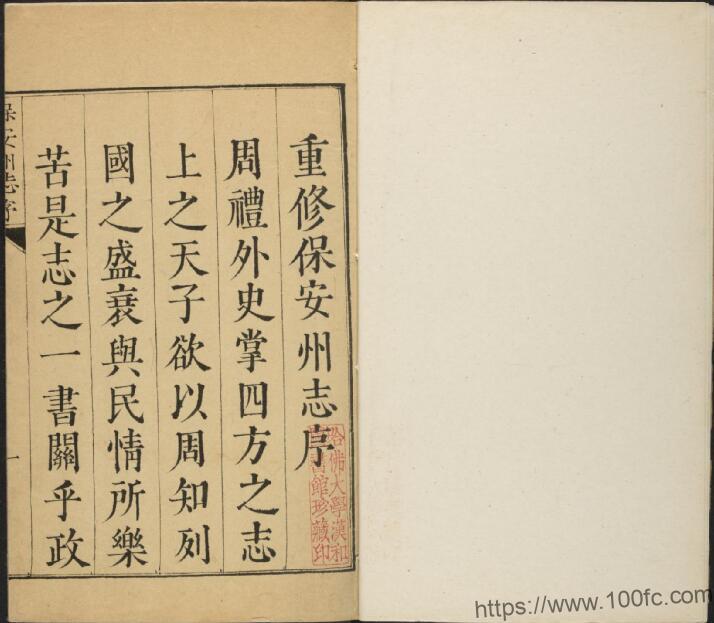 重修保安州志序
周禮外史掌四方之志
上之天子欲以周知列
國之盛衰與民情所樂
苦是志之一書關乎政
保安州志序
一
哈佛大學漢和
圖書館珍藏印
https://www.100fc.com